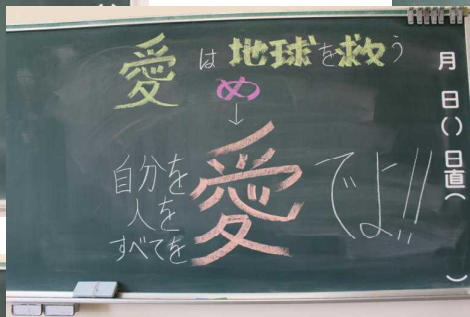 愛は地球を救う
め
↓
自分を
人を
すべてを
愛でよ!!
月 日() 日直( )